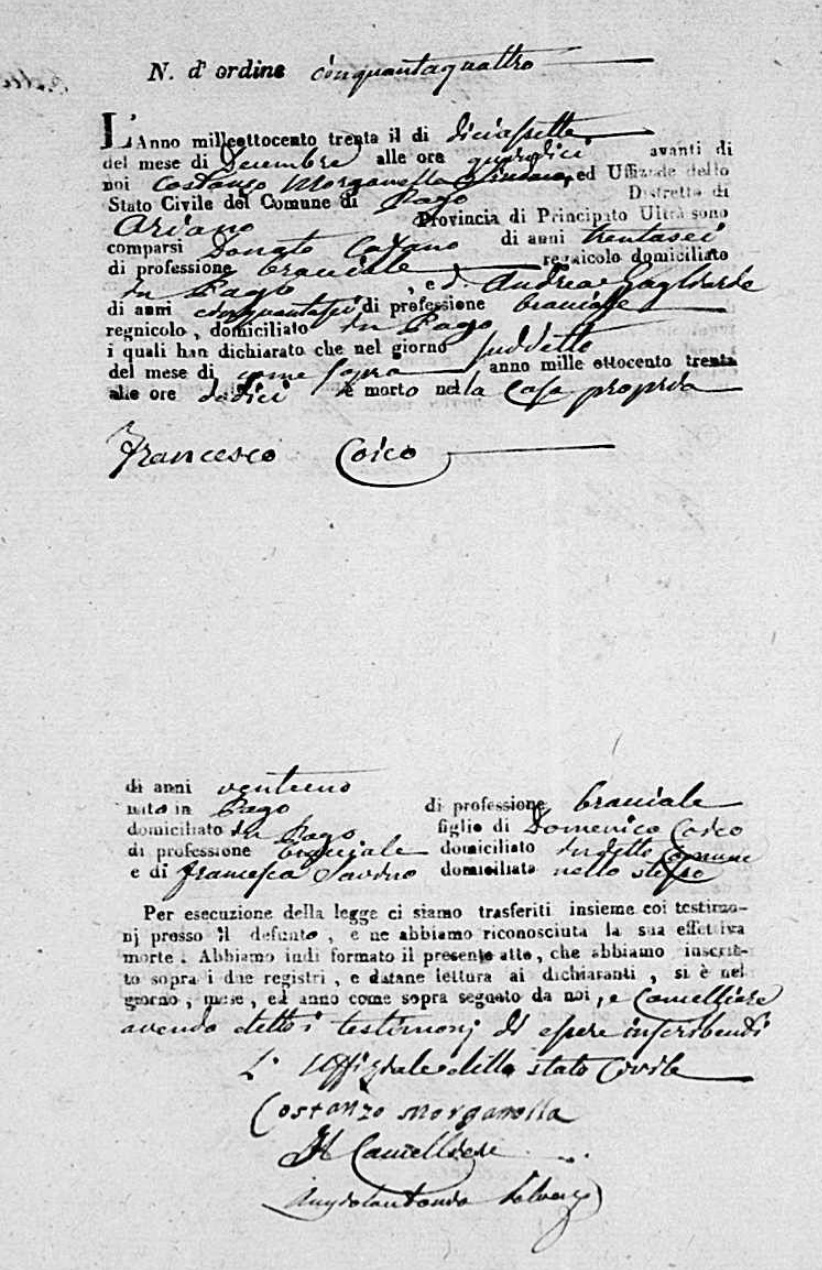 N. d' ordine cinquantaquattro
L'Anno milleottocento trenta il di diciassette
del mese di Decembre alle ore quindici avanti di
noi Costanzo Morganella Sindaco, ed Uffiziale dello
Stato Civile del Comune di Pago Distretto di
Ariano Provincia di Principato Ultra sono
comparsi Donato Catano di anni trentasei
di professione bracciale regnicolo domiciliato
in Pago, e di Andrea Gagliarde
di anni cinquantasei di professione bracciale
regnicolo, domiciliato in Pago
i quali han dichiarato che nel giorno suddetto
del mese di come sopra anno mille ottocento trenta
alle ore dodici è morto nella Casa propria
Francesco Coico
di anni ventuno
nato in Pago di professione bracciale
domiciliato in Pago figlio di Domenico Coico
di professione bracciale domiciliato in detto Comune
e di Francesca Savino domiciliata nello stesso
Per esecuzione della legge ci siamo trasferiti insieme coi testimo-
nj presso il defunto, e ne abbiamo riconosciuta la sua effettiva
morte. Abbiamo indi formato il presente atto, che abbiamo inscrit-
to sopra i due registri, e datane lettura ai dichiaranti, si è nel
giorno, mese, ed anno come sopra segnato da noi, e Cancelliere
avendo detto i testimonj di essere inscribenti
L' Uffiziale dello stato Civile
Costanzo Morganella
Il Cancelliere